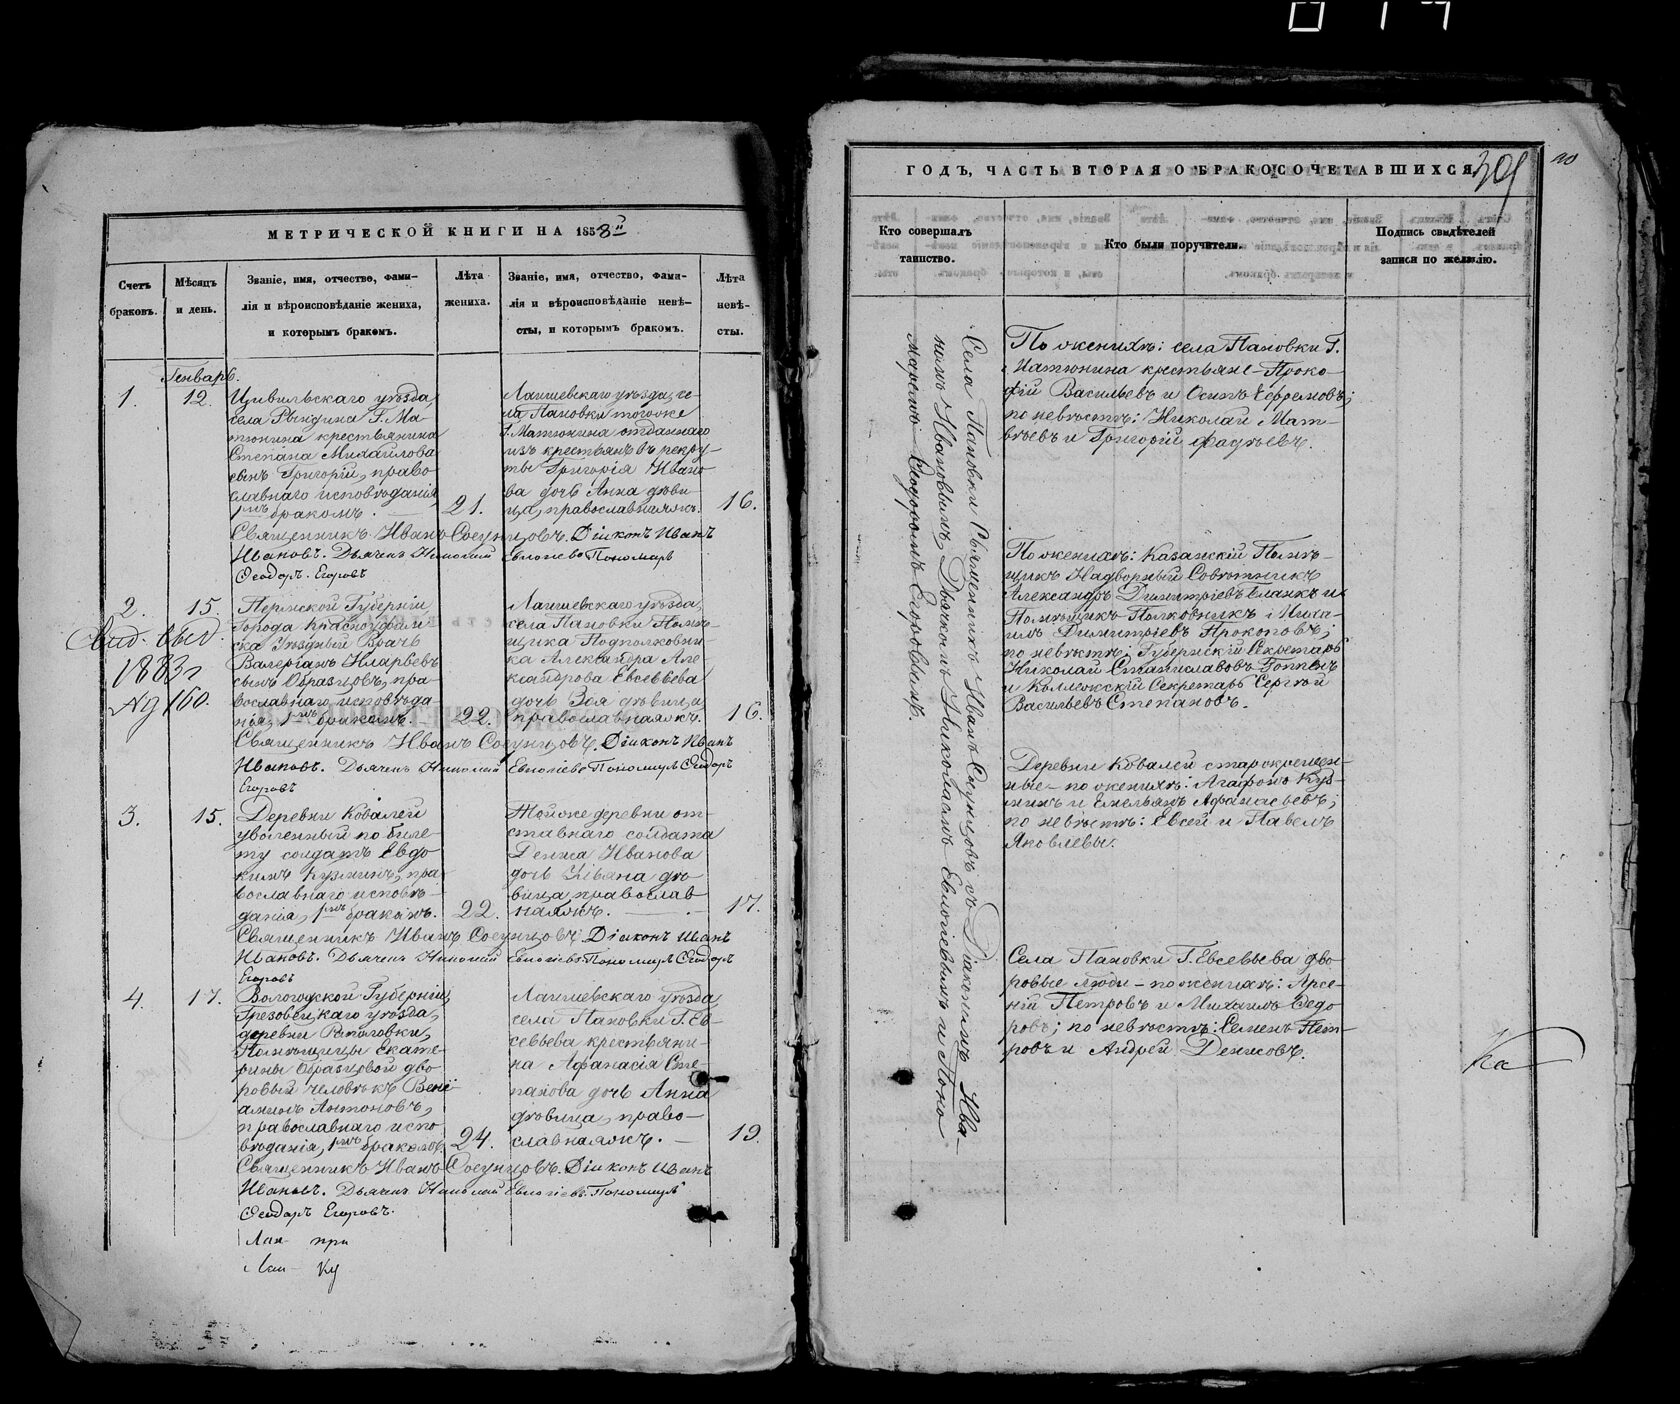 МЕТРИЧЕСКОЙ КНИГИ НА 1858й
Счетъ браковъ.
Мѣсяцъ и день.
Званіе, имя, отчество, фами-
лія и вѣроисповѣданіе жениха,
и которымъ бракомъ.
Лѣта жениха.
Званіе, имя, отчество, фами-
лія и вѣроисповѣданіе невѣ-
сты, и которымъ бракомъ.
Лѣта невѣ-
сты.
Генварь.
1.
12.
Цивильскаго уѣзда,
села Рындина Г. Ма-
тюнина крестьянина
Степана Михайлова
сынъ Григорій, право-
славнаго исповѣданія,
1мъ бракомъ.
21.
Лаишевскаго уѣзда, се-
ла Пановки тогоже
Г. Матюнина отданнаго
изъ крестьянъ въ рекру-
ты Григорія Ивано-
ва дочь Анна дѣви-
ца, православнаяжъ.
16.
Священникъ Иванъ Сосунцовъ. Діаконъ Иванъ
Ивановъ. Дьячекъ Николай Евлогіевъ Пономарь
Ѳеодоръ Егоровъ
2.
15.
Пермской Губерніи,
города Красноуфим-
ска Уѣздный Врачъ
Валеріанъ Иларьевъ
сынъ Образцовъ, пра-
вославнаго исповѣда-
нія, 1мъ бракомъ.
22.
Лаишевскаго уѣзда,
села Пановки Помѣ-
щика Подполковни-
ка Александра Але-
ксандрова Евсевьева
дочь Зоя дѣвица,
православнаяжъ.
16.
1883 г
№ 160.
Священникъ Иванъ Сосунцовъ. Діаконъ Иванъ
Ивановъ. Дьячекъ Николай Евлогіевъ Пономарь Ѳеодоръ
Егоровъ
3.
15.
Деревни Ковалей
уволенный по биле-
ту солдатъ Евдо-
кимъ Кузминъ, пра-
вославнаго исповѣ-
данія, 1мъ бракомъ.
22.
Тойже деревни от-
ставнаго солдата
Дениса Иванова
дочь Ульяна дѣ-
вица, православ-
наяжъ.
17.
Священникъ Иванъ Сосунцовъ. Діаконъ Иванъ
Ивановъ. Дьячекъ Николай Евлогіевъ Пономарь Ѳеодоръ
Егоровъ
4.
17.
Вологодской Губерніи,
Грязовецкаго уѣзда,
деревни
Помѣщицы Екате-
рины Образцовой дво-
ровый человѣкъ Вені-
аминъ Антоновъ,
православнаго испо-
вѣданія, 1мъ бракомъ.
24.
Лаишевскаго уѣзда,
села Пановки Г. Ев-
севьева крестьяни-
на Афанасія Сте-
панова дочь Анна
дѣвица, право-
славнаяжъ.
19.
Священникъ Иванъ Сосунцовъ. Діаконъ Иванъ
Ивановъ. Дьячекъ Николай Евлогіевъ Пономарь
Ѳеодоръ Егоровъ.
ГОДЪ, ЧАСТЬ ВТОРАЯ О БРАКОСОЧЕТАВШИХСЯ
Кто совершалъ таинство.
Кто были поручители.
Подпись свидѣтелей
записи по желанію.
Села Пановки Священникъ Иванъ Сосунцовъ съ Діакономъ Ива-
номъ Ивановымъ, Дьячкомъ Николаемъ Евлогіевымъ и Поно-
маремъ Ѳеодоромъ Егоровымъ.
По женихѣ: села Пановки Г.
Матюнина крестьяне – Проко-
фій Васильевъ и Осипъ Ефремовъ;
по невѣстѣ: Николай Мат-
вѣевъ и Григорій Фадѣевъ.
По женихѣ: Казанскій Помѣ-
щикъ Надворный Совѣтникъ
Александръ Димитріевъ и
Помѣщикъ Полковникъ Миха-
илъ Димитріевъ Прокоповъ;
по невѣстѣ: Губернскій Секретарь
Николай Станиславовъ
и Коллежскій Секретарь Сергѣй
Васильевъ Степановъ.
Деревни Ковалей старокрещен-
ные – по женихѣ: Агафонъ Куз-
минъ и Емельянъ Афанасьевъ;
по невѣстѣ: Евсей и Павелъ
Яковлевы.
Села Пановки Г. Евсевьева дво-
ровые люди – по женихѣ: Арсе-
ній Петровъ и Михаилъ Ѳедо-
ровъ; по невѣстѣ: Семенъ Пет-
ровъ и Андрей Денисовъ.